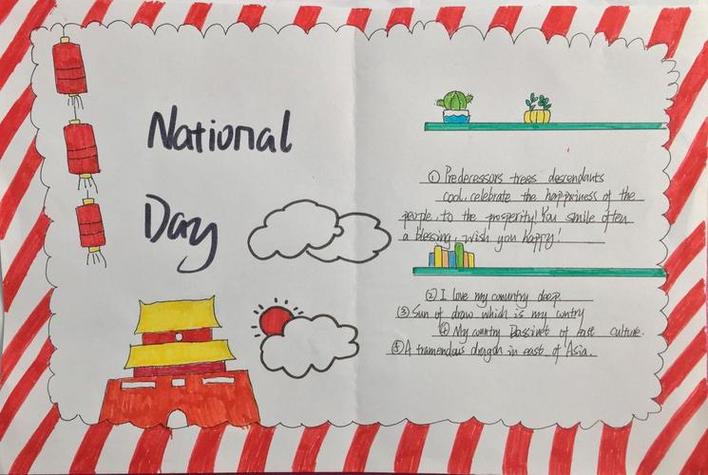 National
Day
① Predecessors trees descendants
cool, celebrate the happriness of the
people, to the prosperity! You smile often
a blessing, wish you happy!
② I love my comuntry deep
③ Sun of draw which is my cuntry
④ My country Bassinet of east culture.
⑤ A tramendous dragon in east of Asia.